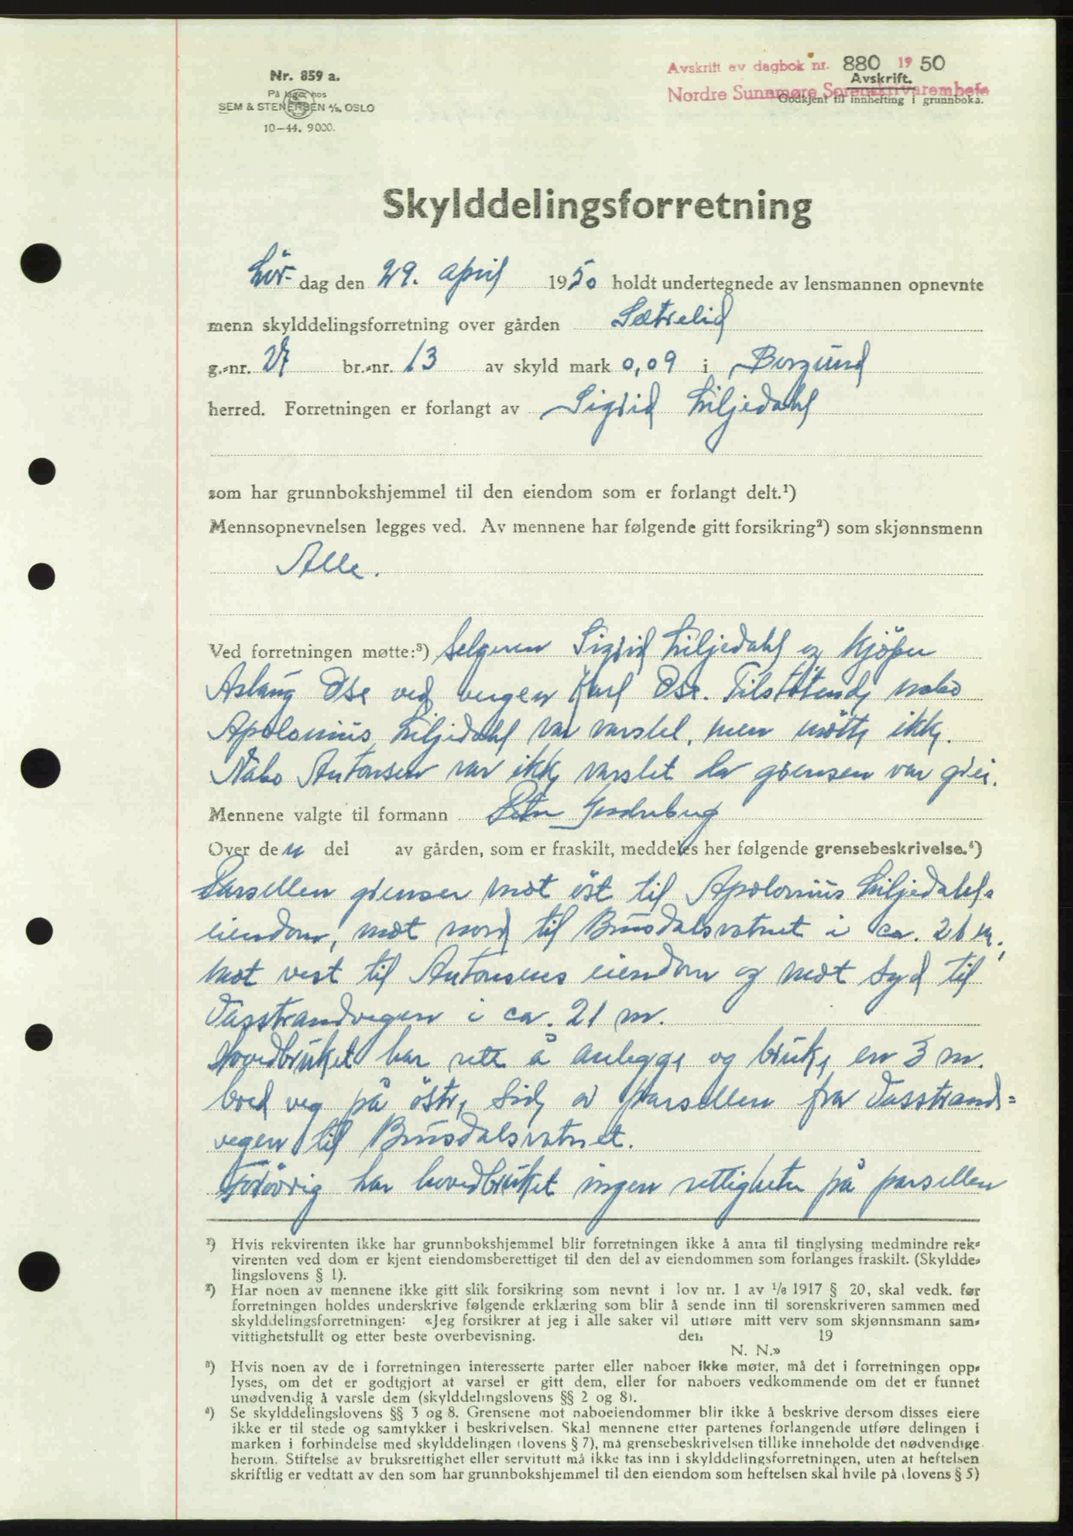 Nr. 859 a.
På lager hos
SEM & STENERSEN A/S, OSLO
10—44. 9000.
Avskrift av dagbok nr. 880 1950
Avskrift.
Nordre Sunnmøre Sorenskrivarembete
Godkjent til innhefting i grunnboka.
Skylddelingsforretning
Lör- dag den 29. april 1950 holdt undertegnede av lensmannen opnevnte
menn skylddelingsforretning over gården Sætrelid
g.-nr. 27 br.-nr. 13 av skyld mark 0,09 i Borgund
herred. Forretningen er forlangt av Sigrid Liljedahl
som har grunnbokshjemmel til den eiendom som er forlangt delt.¹)
Mennsopnevnelsen legges ved. Av mennene har følgende gitt forsikring²) som skjønnsmenn
Alle.
Ved forretningen møtte:³) Selgeren Sigrid Liljedahl og kjöper
Aslaug Ose ved vergen Karl Ose. Tilstøtende nabo
Apolonius Liljedahl var varslet, men møtte ikke.
Nabo Antonsen var ikke varslet da grensen var grei.
Mennene valgte til formann Petter
Over den del av gården, som er fraskilt, meddeles her følgende grensebeskrivelse.⁴)
Parsellen grenser mot öst til Apolonius Liljedahls
eiendom, mot nord til Brusdalsvatnet i ca. 21 m,
mot vest til Antonsens eiendom og mot syd til
Vasstrandvegen i ca. 21 m.
Hovedbruket har rett å anlegge og bruke en 3 m.
bred veg på östre side av parsellen fra Vasstrand=
vegen til Brusdalsvatnet.
Forövrig har hovedbruket ingen rettigheter på parsellen
¹) Hvis rekvirenten ikke har grunnbokshjemmel blir forretningen ikke å anta til tinglysing medmindre rek-
virenten ved dom er kjent eiendomsberettiget til den del av eiendommen som forlanges fraskilt. (Skyldde-
lingslovens § 1).
²) Har noen av mennene ikke gitt slik forsikring som nevnt i lov nr. 1 av 1/6 1917 § 20, skal vedk. før
forretningen holdes underskrive følgende erklæring som blir å sende inn til sorenskriveren sammen med
skylddelingsforretningen: «Jeg forsikrer at jeg i alle saker vil utføre mitt verv som skjønnsmann sam-
vittighetsfullt og etter beste overbevisning. den 19
N. N.»
³) Hvis noen av de i forretningen interesserte parter eller naboer ikke møter, må det i forretningen opp-
lyses, om det er godtgjort at varsel er gitt dem, eller for naboers vedkommende om det er funnet
unødvendig å varsle dem (skylddelingslovens §§ 2 og 8).
⁴) Se skylddelingslovens §§ 3 og 8. Grensene mot naboeiendommer blir ikke å beskrive dersom disses eiere
ikke er til stede og samtykker i beskrivelsen. Skal mennene etter partenes forlangende utføre delingen i
marken i forbindelse med skylddelingen (lovens § 7), må grensebeskrivelsen tillike inneholde det nødvendige
herom. Stiftelse av bruksrettighet eller servitutt må ikke tas inn i skylddelingsforretningen, uten at heftelsen
skriftlig er vedtatt av den som har grunnbokshjemmel til den eiendom som heftelsen skal hvile på (lovens § 5)